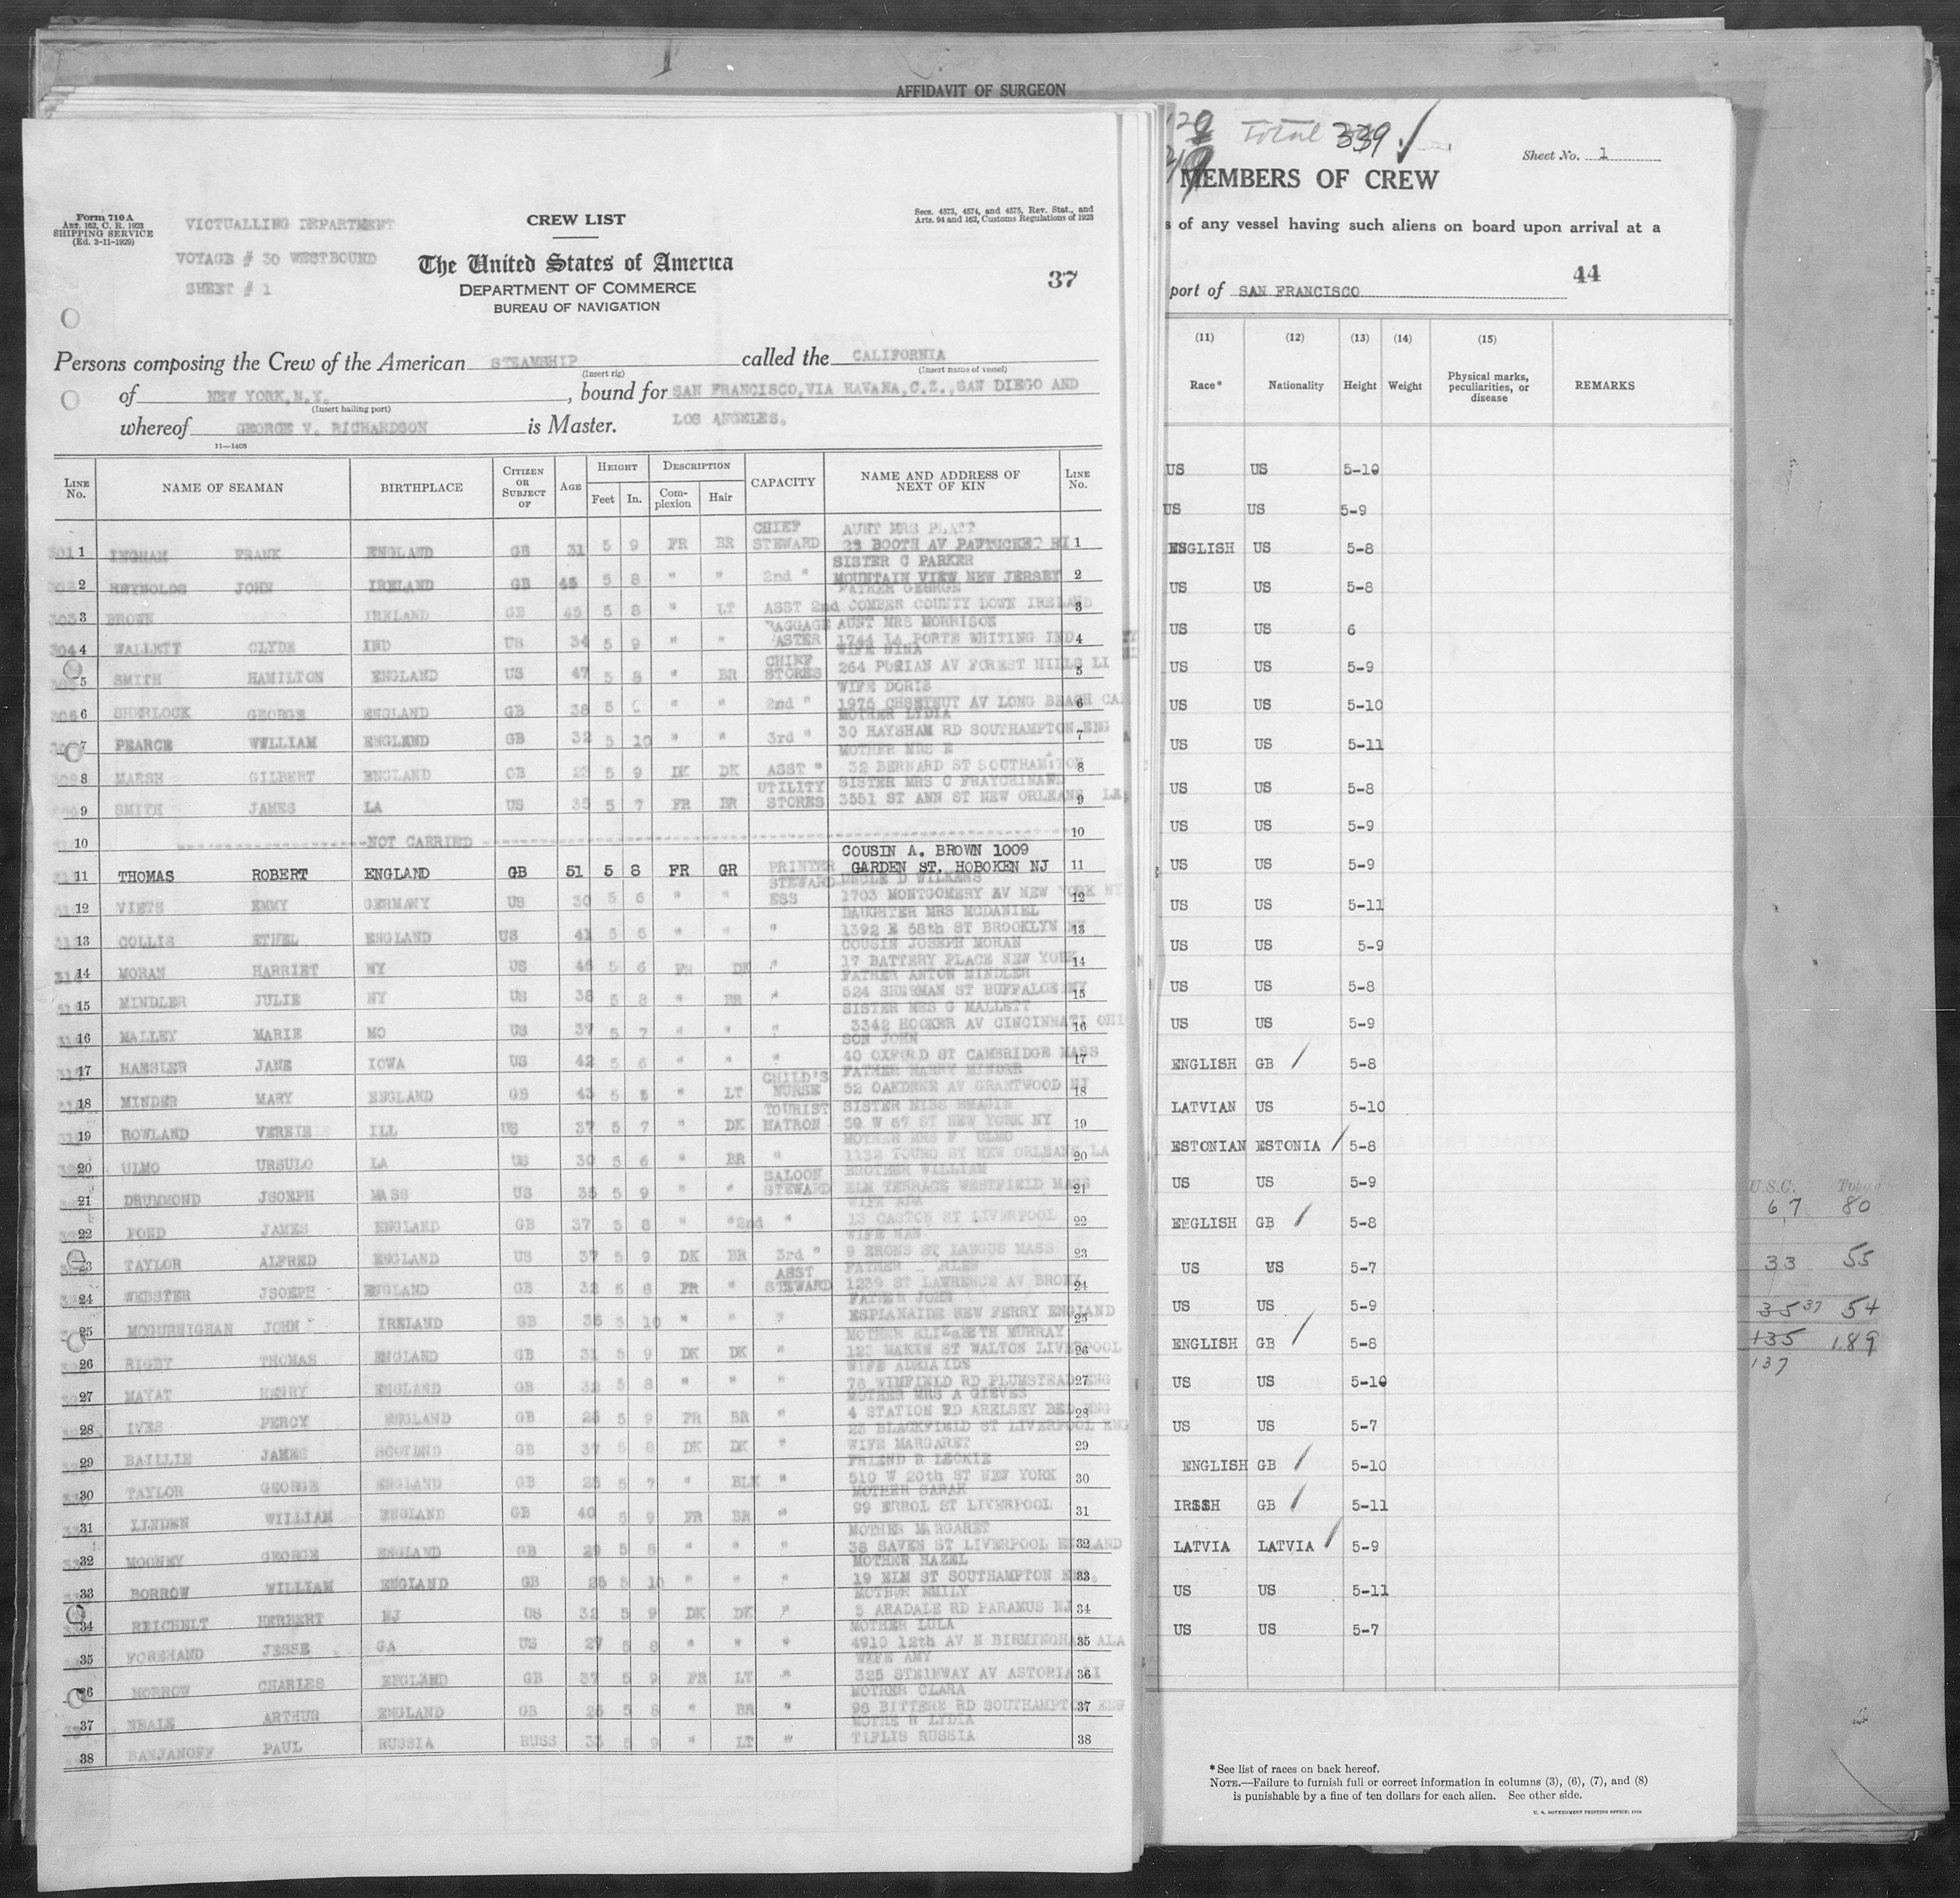 AFFIDAVIT OF SURGEON
Form 710 A
Art. 162, C. R. 1923
SHIPPING SERVICE
(Ed. 3-11-1929)
VICTUALLING DEPARTMENT
VOYAGE # 30 WESTBOUND
SHEET # 1
CREW LIST
Secs. 4573, 4574, and 4575, Rev. Stat., and
Arts. 94 and 162, Customs Regulations of 1923
The United States of America
DEPARTMENT OF COMMERCE
BUREAU OF NAVIGATION
37
Persons composing the Crew of the American STEAMSHIP called the CALIFORNIA
(Insert rig) (Insert name of vessel)
of NEW YORK, N.Y. , bound for SAN FRANCISCO, VIA HAVANA, C.Z., SAN DIEGO AND
(Insert hailing port)
whereof GEORGE V. RICHARDSON is Master. LOS ANGELES.
11—1408
LINE No. NAME OF SEAMAN BIRTHPLACE CITIZEN OR SUBJECT OF AGE HEIGHT Feet In. DESCRIPTION Complexion Hair CAPACITY NAME AND ADDRESS OF NEXT OF KIN LINE No.
CHIEF AUNT MRS PLATT
1 INGHAM FRANK ENGLAND GB 31 5 9 FR BR STEWARD 25 BOOTH AV PAWTUCKET RI 1
SISTER C PARKER
2 REYNOLDS JOHN IRELAND GB 45 5 8 " " 2nd " MOUNTAIN VIEW NEW JERSEY 2
FATHER GEORGE
3 BROWN IRELAND GB 45 5 8 " LT ASST 2nd COMBER COUNTY DOWN IRELAND 3
BAGGAGE AUNT MRS MORRISON
4 WALLETT CLYDE IND US 34 5 9 " " MASTER 1744 LA PORTE WHITING IND 4
CHIEF WIFE NINA
5 SMITH HAMILTON ENGLAND US 47 5 8 " BR STORES 264 PURIAN AV FOREST HILLS LI 5
WIFE DORIS
6 SHERLOCK GEORGE ENGLAND GB 38 5 " " 2nd " 1975 CHSETNUT AV LONG BEACH CAL 6
MOTHER LYDIA
7 PEARCE WILLIAM ENGLAND GB 32 5 10 " " 3rd " 30 HAYSHAM RD SOUTHAMPTON ENG 7
MOTHER MRS E
8 MARSH GILBERT ENGLAND GB 25 5 9 DK DK ASST " 32 BERNARD ST SOUTHAMPTON 8
UTILITY SISTER MRS C FRAYCHINAND
9 SMITH JAMES LA US 35 5 7 FR BR STORES 3551 ST ANN ST NEW ORLEANS LA 9
10 NOT CARRIED 10
COUSIN A. BROWN 1009
11 THOMAS ROBERT ENGLAND GB 51 5 8 FR GR PRINTER GARDEN ST. HOBOKEN NJ 11
STEWARD UNCLE D WILKENS
12 VIETS EMMY GERMANY US 30 5 6 " " ESS 1703 MONTGOMERY AV NEW YORK NY 12
DAUGHTER MRS MCDANIEL
13 COLLIS ETHEL ENGLAND US 41 5 5 " " " 1392 E 58th ST BROOKLYN NY 13
COUSIN JOSEPH MORAN
14 MORAN HARRIET NY US 46 5 6 FR DK " 17 BATTERY PLACE NEW YORK 14
FATHER ANTON MINDLER
15 MINDLER JULIE NY US 38 5 8 " BR " 524 SHERMAN ST BUFFALOE NY 15
SISTER MRS G MALLETT
16 MALLEY MARIE MO US 37 5 7 " " " 3342 HOOKER AV CINCINNATI OHI 16
SON JOHN
17 HAESLER JANE IOWA US 42 5 6 " " " 40 OXFORD ST CAMBRIDGE MASS 17
CHILD'S FATHER HARRY MINDER
18 MINDER MARY ENGLAND GB 43 5 5 " LT NURSE 52 OAKDENE AV GRANTWOOD NJ 18
TOURIST SISTER MISS BEAGIN
19 ROWLAND VERSIE ILL US 37 5 7 " DK MATRON 59 W 67 ST NEW YORK NY 19
MOTHER MRS F OLMO
20 ULMO URSULO LA US 30 5 6 " BR " 1132 TOURO ST NEW ORLEANS LA 20
SALOON BROTHER WILLIAM
21 DRUMMOND JSOEPH MASS US 35 5 9 " " STEWARD ELM TERRACE WESTFIELD MASS 21
WIFE ADA
22 POND JAMES ENGLAND GB 37 5 8 " " 2nd " 13 CASTON ST LIVERPOOL 22
WIFE NAN
23 TAYLOR ALFRED ENGLAND US 37 5 9 DK BR 3rd " 9 ERONS ST LABOUS MASS 23
ASST FATHER
24 WEBSTER JSOEPH ENGLAND GB 32 5 8 FR " STEWARD 1239 ST LAWRENCE AV BRONX 24
FATHER JOHN
25 MCGURNIGHAN JOHN IRELAND GB 36 5 10 " " " ESPLANAIDE NEW FERRY ENGLAND 25
MOTHER ELIZABETH MURRAY
26 RIGBY THOMAS ENGLAND GB 31 5 9 DK DK " 123 MAKIN ST WALTON LIVERPOOL 26
WIFE ADELAIDE
27 MAYAT HENRY ENGLAND GB 32 5 8 " " " 78 WINFIELD RD PLUMSTEAD ENG 27
MOTHER MRS A GIEVES
28 IVES PERCY ENGLAND GB 25 5 9 FR BR " 4 STATION RD ARELSEY BED ENG 28
25 BLACKFIELD ST LIVERPOOL ENG
29 BAILLIE JAMES SCOTLND GB 37 5 8 DK DK " WIFE MARGARET 29
FRIEND R LECKIE
30 TAYLOR GEORGE ENGLAND GB 28 5 7 " BLK " 510 W 20th ST NEW YORK 30
MOTHER SARAH
31 LINDEN WILLIAM ENGLAND GB 40 5 9 FR BR " 99 ERROL ST LIVERPOOL 31
MOTHER MARGARET
32 MOONEY GEORGE ENGLAND GB 29 5 5 " " " 38 SAVEN ST LIVERPOOL ENGLAND 32
MOTHER HAZEL
33 BORROW WILLIAM ENGLAND GB 25 5 10 " " " 19 ELM ST SOUTHAMPTON ENG. 33
MOTHER EMILY
34 REICHELT HERBERT NJ US 32 5 9 DK DK " 5 ARADALE RD PARAMUS NJ 34
MOTHER LULA
35 FOREHAND JESSE GA US 27 5 8 " " " 4910 12th AV N BIRMINGHAM ALA 35
WIFE AMY
36 MORROW CHARLES ENGLAND GB 37 5 9 FR LT " 325 STEINWAY AV ASTORIA LI 36
MOTHER CLARA
37 NEALE ARTHUR ENGLAND GB 25 5 8 " BR " 98 BITTERE RD SOUTHAMPTON ENG 37
MOTHE R LYDIA
38 BANJANOFF PAUL RUSSIA RUSS 33 5 9 " LT " TIFLIS RUSSIA 38
Total 339
Sheet No. 1
MEMBERS OF CREW
s of any vessel having such aliens on board upon arrival at a
44
port of SAN FRANCISCO
(11) (12) (13) (14) (15)
Race* Nationality Height Weight Physical marks, peculiarities, or disease REMARKS
US US 5-10
US US 5-9
ENGLISH US 5-8
US US 5-8
US US 6
US US 5-9
US US 5-10
US US 5-11
US US 5-8
US US 5-9
US US 5-9
US US 5-11
US US 5-9
US US 5-8
US US 5-9
ENGLISH GB / 5-8
LATVIAN US 5-10
ESTONIAN ESTONIA / 5-8
US US 5-9
ENGLISH GB / 5-8
US US 5-7
US US 5-9
ENGLISH GB / 5-8
US US 5-10
US US 5-7
ENGLISH GB / 5-10
IRISH GB / 5-11
LATVIA LATVIA / 5-9
US US 5-11
US US 5-7
* See list of races on back hereof.
NOTE.—Failure to furnish full or correct information in columns (3), (6), (7), and (8)
is punishable by a fine of ten dollars for each alien. See other side.
U. S. GOVERNMENT PRINTING OFFICE: 1929
U.S.C.
67 80
33 55
35 37 54
135 189
137